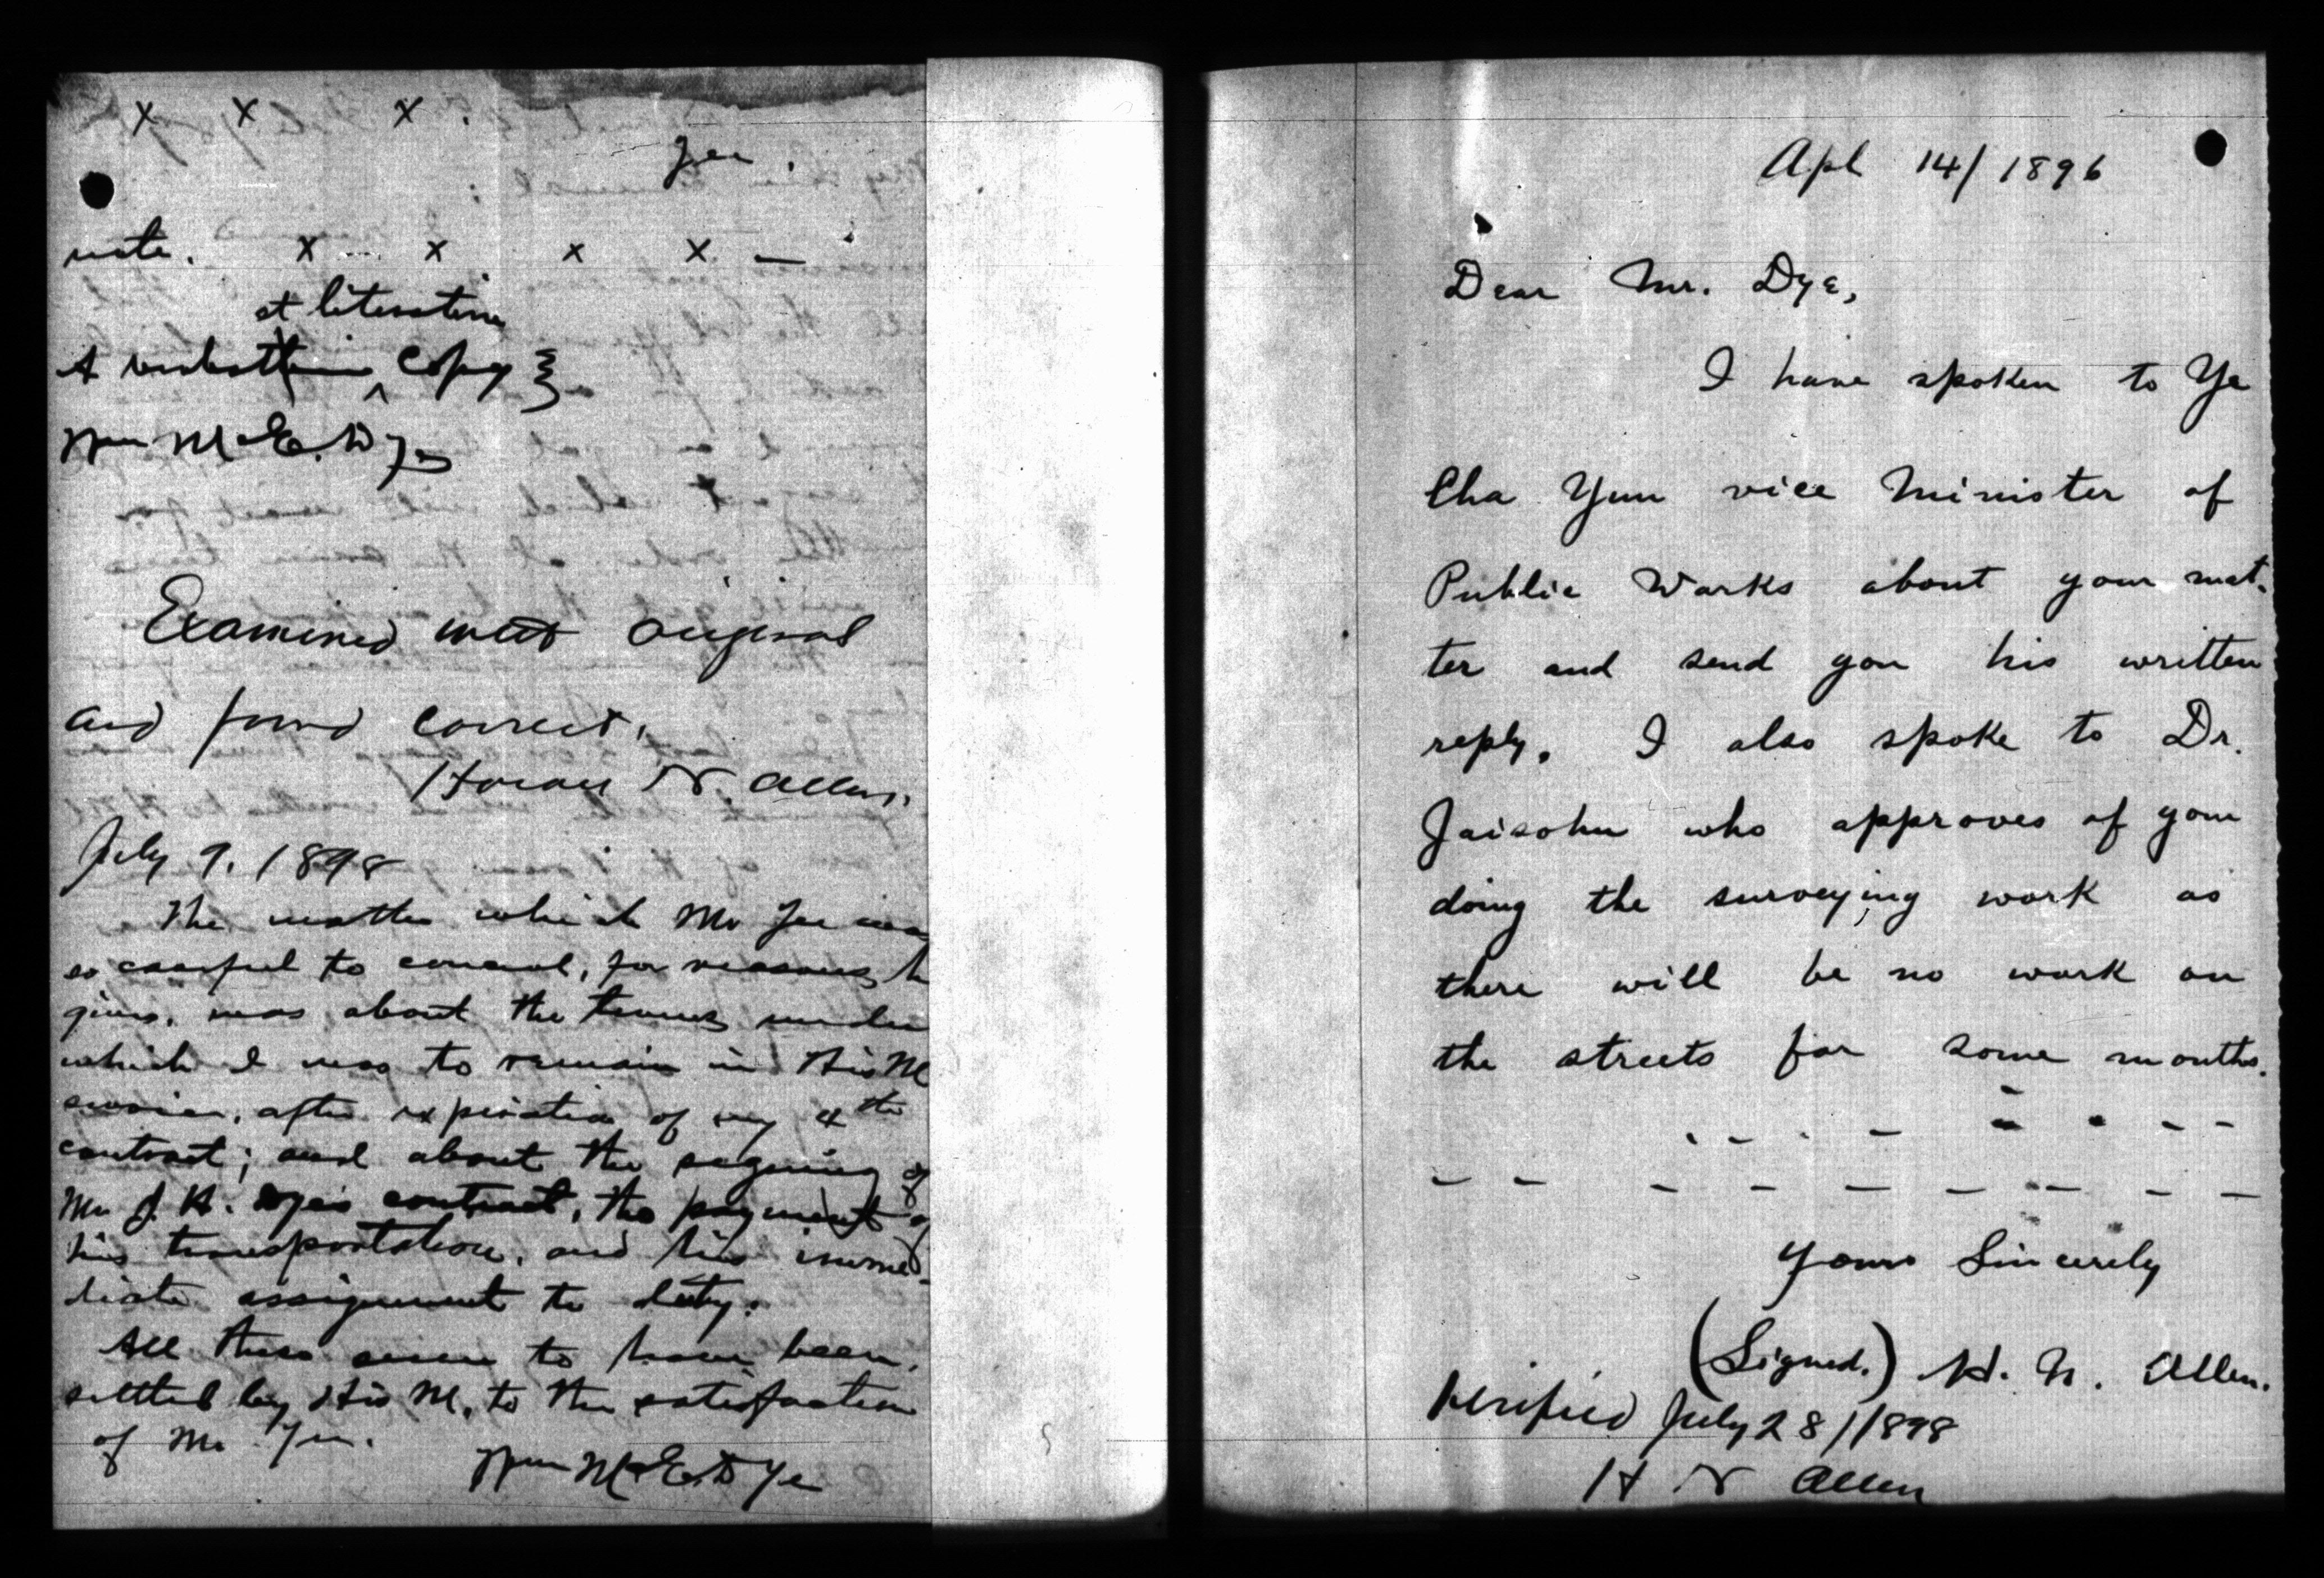 x x x .
Yee.
note. x x x x —
et literatim
A verbatim ^ copy }
Wm McE. Dye
Examined with original
and found correct.
Horace N. Allen.
July 9. 1898
The matter which Mr Yee was
so careful to conceal, for reasons h
gives, was about the terms under
which I was to remain in His M
service, after expiration of my 4th
contract; and about the signing of
Mr J. H. Dye's contract, the payment of
his transportation, and his imme-
diate assignment to duty.
All these seem to have been,
settled by His M. to the satisfaction
of Mr Yee.
Wm McE. Dye
Apl 14/1896
Dear Mr. Dye,
I have spoken to Ye
Cha Yun vice Minister of
Public Works about your mat-
ter and send you his written
reply. I also spoke to Dr.
Jaisohn who approves of your
doing the surveying work as
there will be no work on
the streets for some months.
- - - - - - - -
- - - - - - - - -
Yours Sincerely
(Signed.) H. N. Allen.
Verified July 28/1898
H N Allen